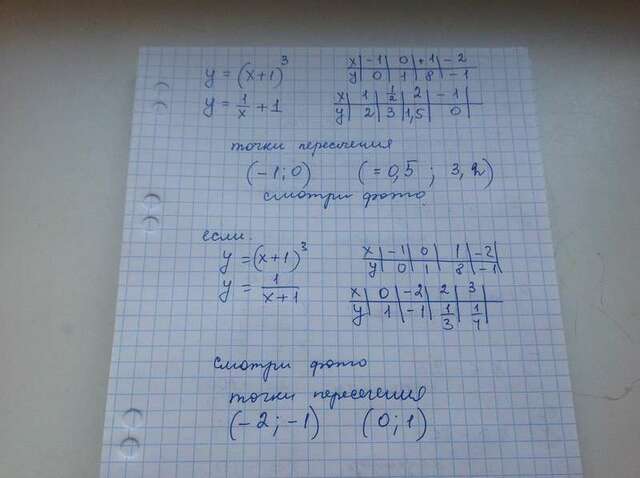 y = (x+1)³
x | -1 | 0 | +1 | -2
y | 0 | 1 | 8 | -1
y = 1/x + 1
x | 1 | 1/2 | 2 | -1
y | 2 | 3 | 1,5 | 0
точки пересечения
(-1; 0) (= 0,5 ; 3,2)
смотри фото
если
y = (x+1)³
x | -1 | 0 | 1 | -2
y | 0 | 1 | 8 | -1
y = 1/(x+1)
x | 0 | -2 | 2 | 3
y | 1 | -1 | 1/3 | 1/4
смотри фото
точки пересечения
(-2; -1) (0; 1)